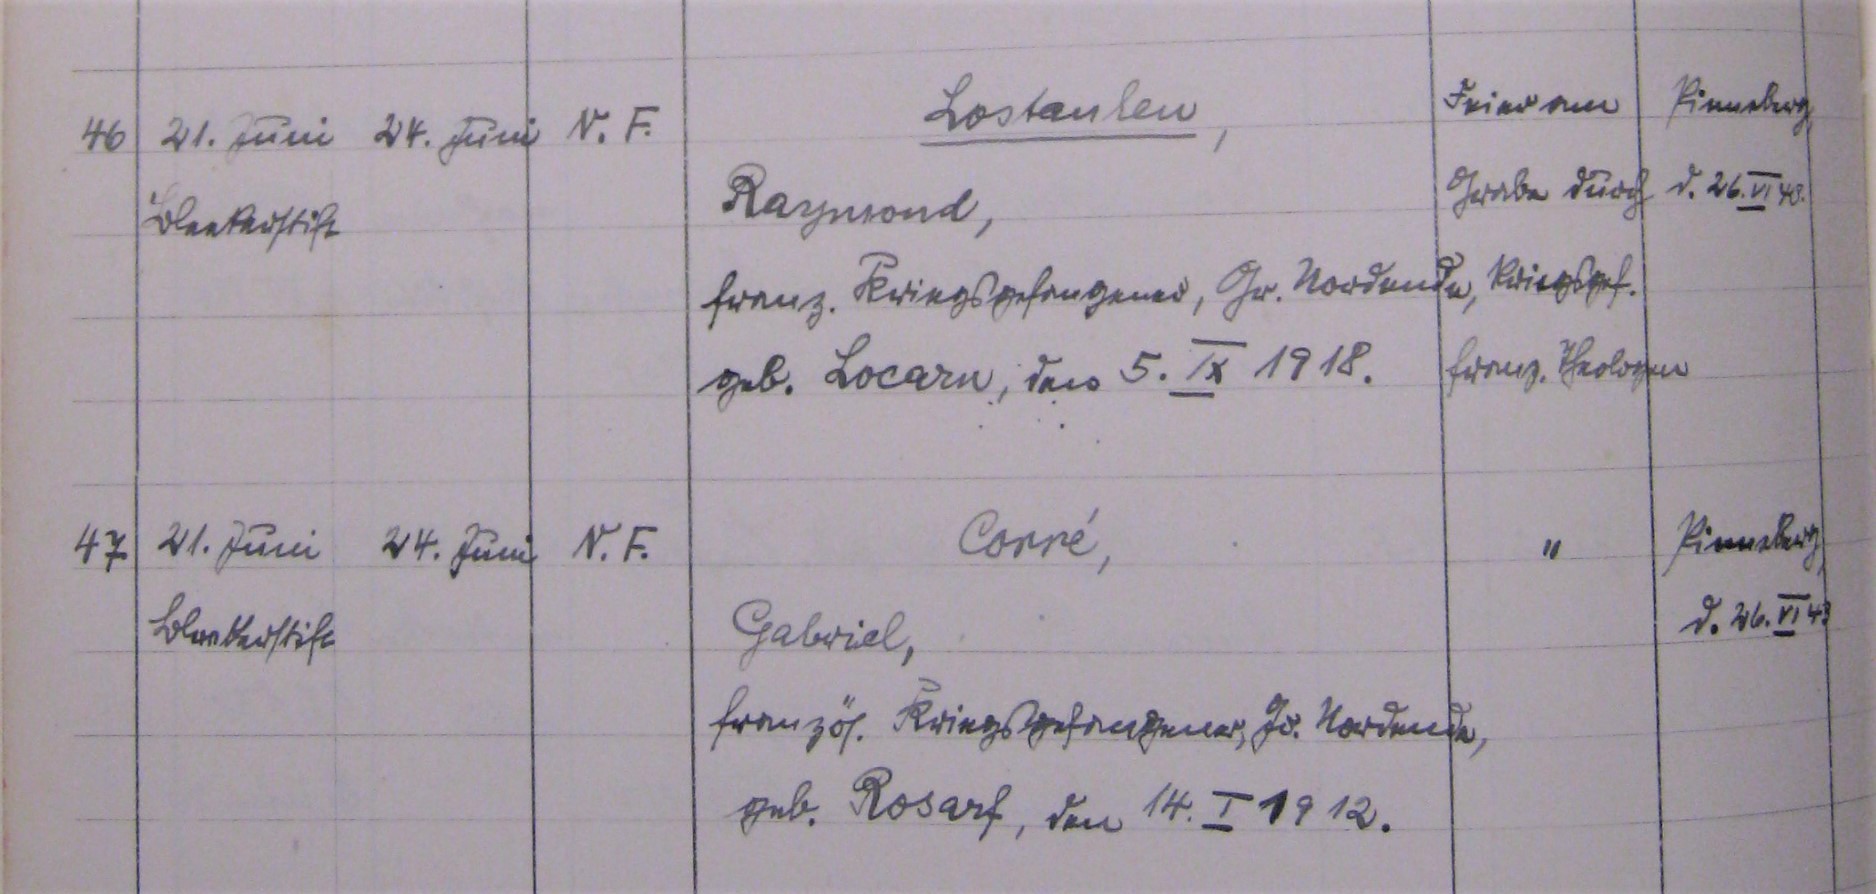 46 21. Juni 24. Juni N. F. Lostanlen, Feier am Pinneberg,
Bleekerstift Raymond, Grabe durch d. 26. VI 43.
franz. Kriegsgefangener, Gr. Nordende, Kriegsgef.
geb. Locarn, den 5. IX 1918. franz. Theologen
47 21. Juni 24. Juni N. F. Corré, " Pinneberg,
Bleekerstift Gabriel, d. 26. VI 43
französ. Kriegsgefangener, Gr. Nordende,
geb. Rosarf, den 14. I 1912.